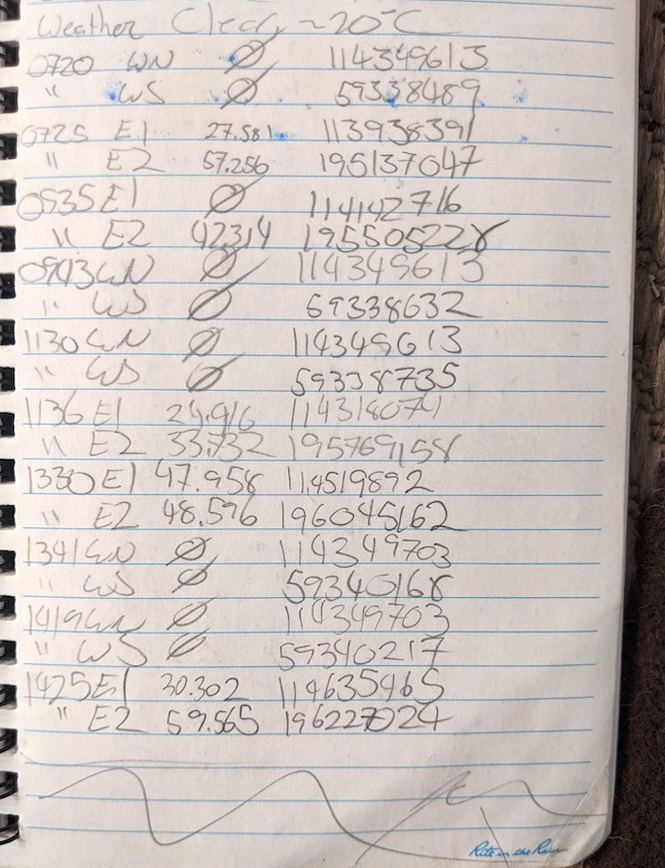 Weather Clear, ~20°C
0720 WN Ø 114349613
" WS Ø 59338489
0725 E1 27.581 113938391
" E2 57.256 195137047
0935 E1 Ø 114142716
" E2 42314 195505228
0943 WN Ø 114349613
" WS Ø 59338632
1130 WN Ø 114349613
" WS Ø 59338735
1136 E1 24.916 114318074
" E2 33.732 195769158
1330 E1 47.958 114519892
" E2 48.596 196045162
1341 WN Ø 114349703
" WS Ø 59340168
1419 WN Ø 114349703
" WS Ø 59340217
1425 E1 30.302 114635465
" E2 59.565 196227024
Rite in the Rain